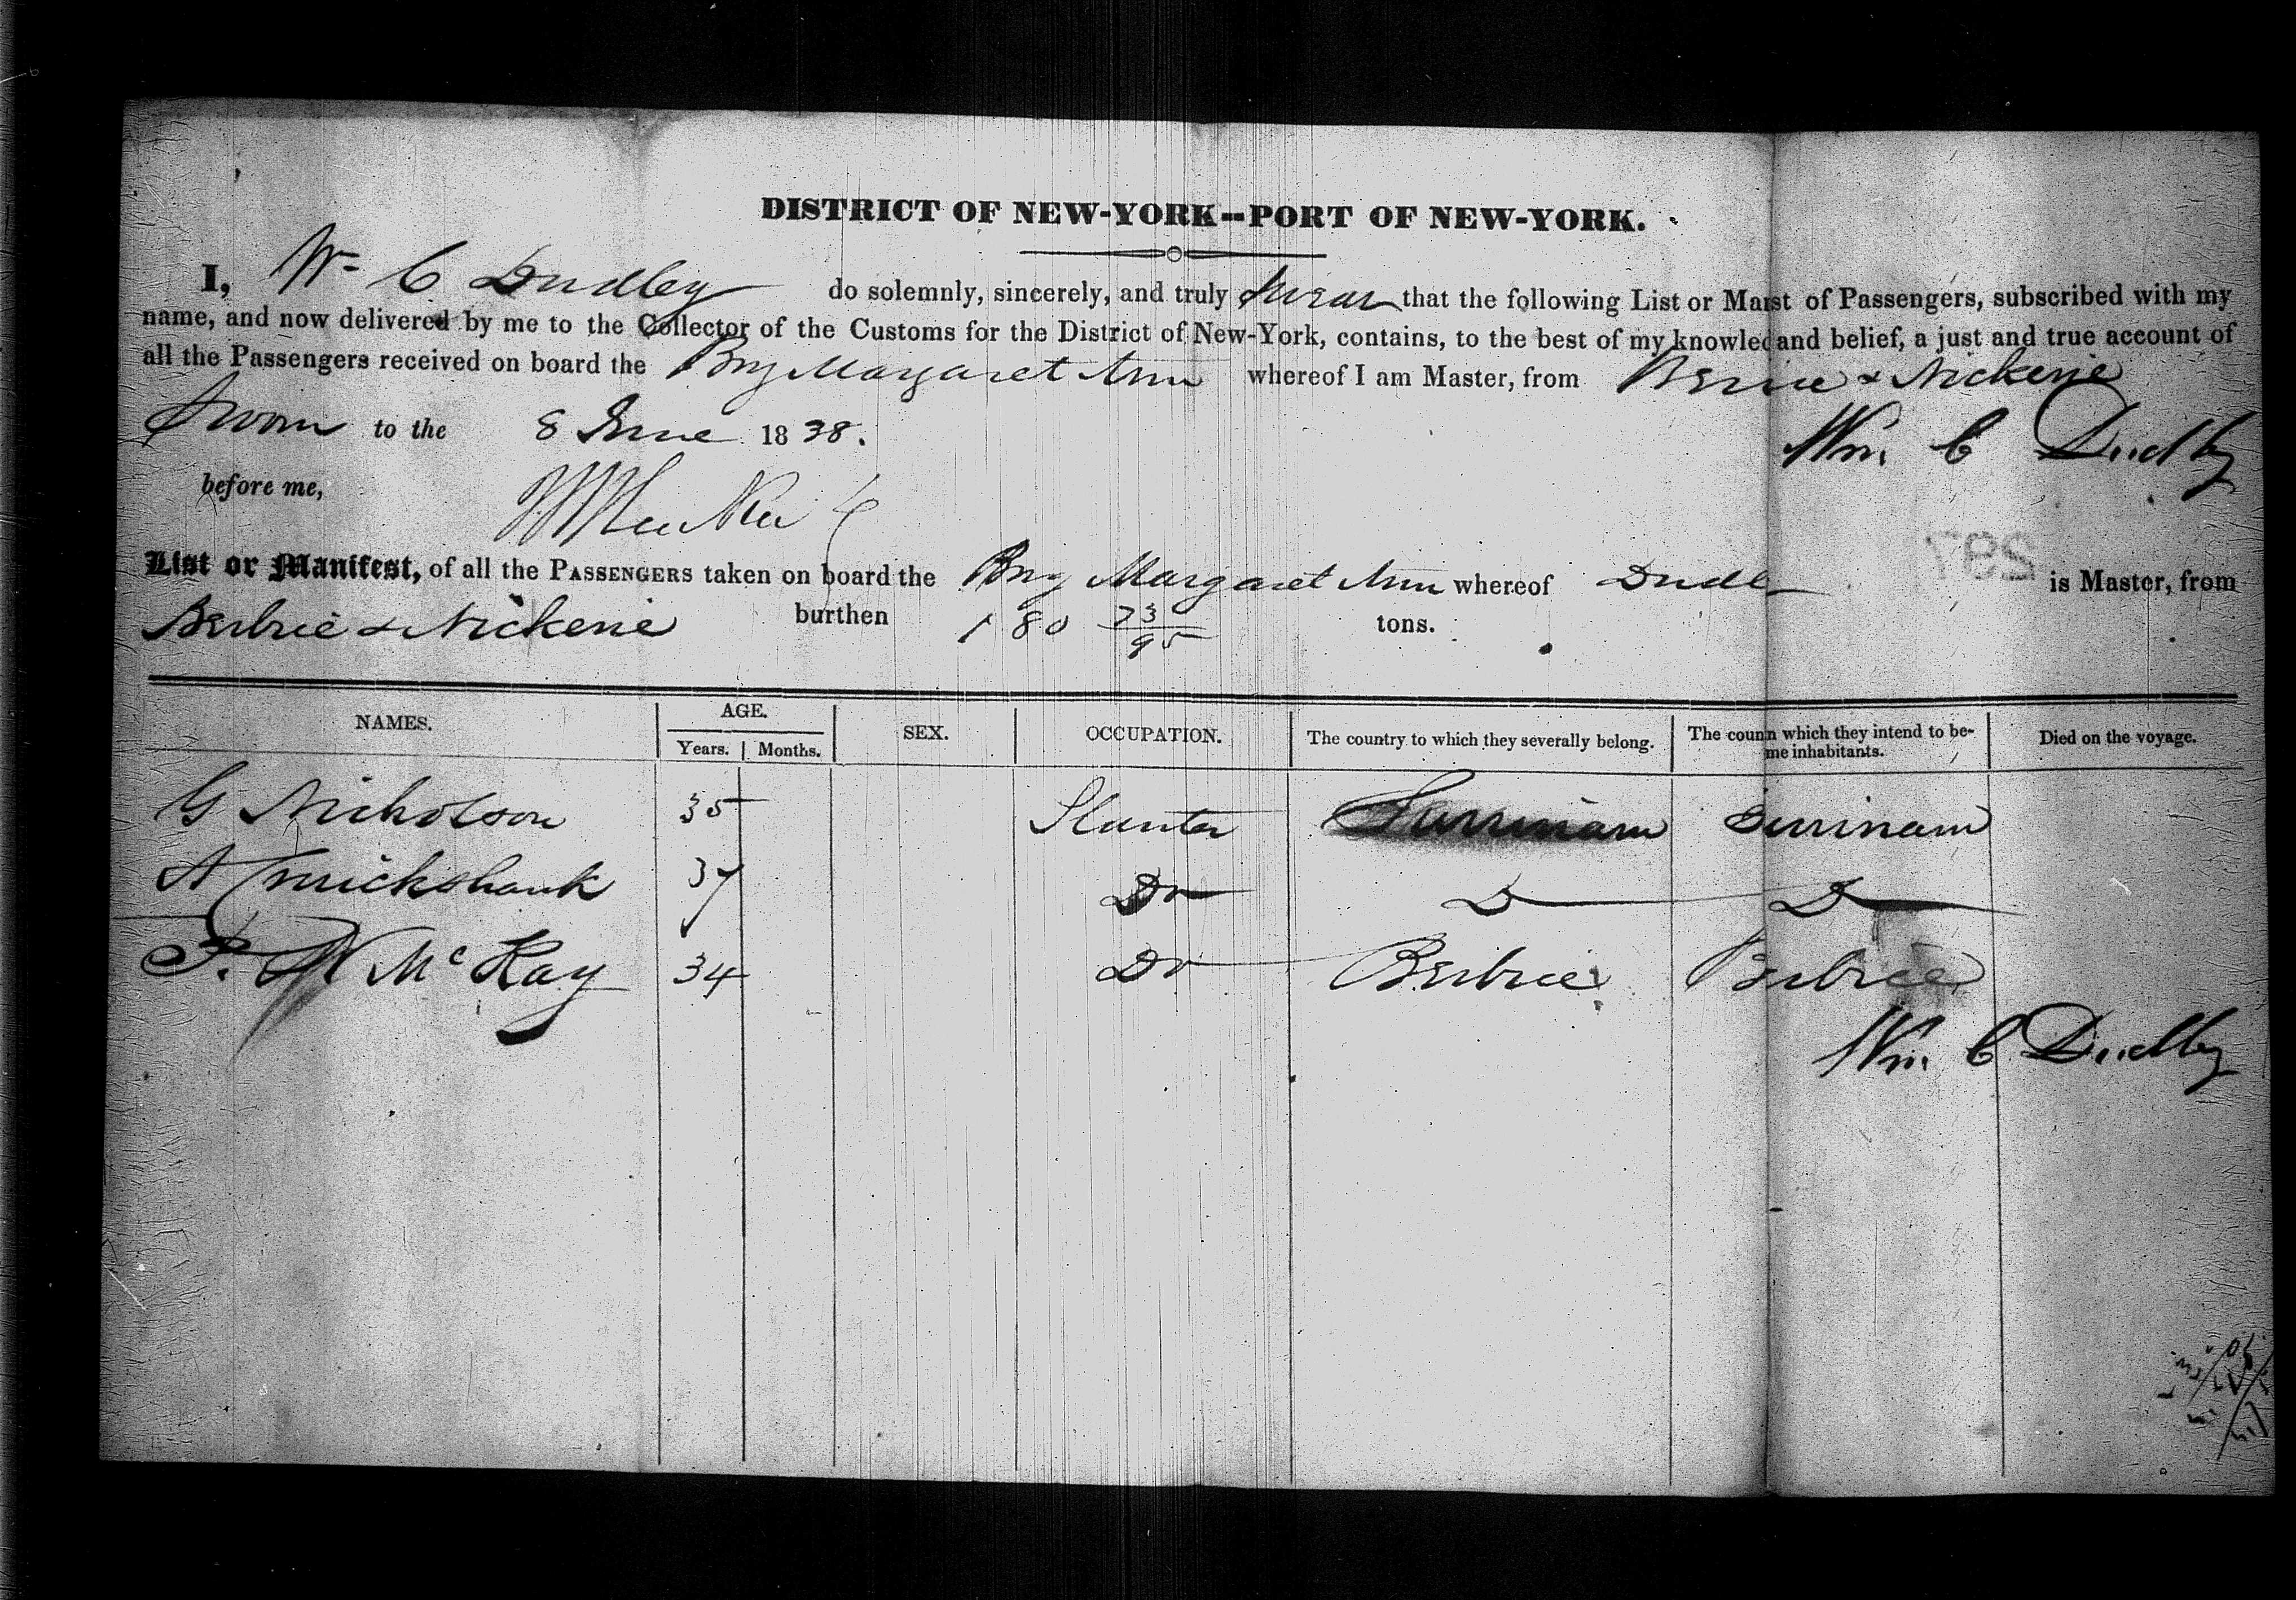 DISTRICT OF NEW-YORK--PORT OF NEW-YORK.
I, Wm C Dudley do solemnly, sincerely, and truly swear that the following List or Ma[...]st of Passengers, subscribed with my
name, and now delivered by me to the Collector of the Customs for the District of New-York, contains, to the best of my knowled and belief, a just and true account of
all the Passengers received on board the Brig Margaret Ann whereof I am Master, from & Nickerie
Sworn to the 8 June 1838.
Wm. C Dudley
before me,
297
List or Manifest, of all the PASSENGERS taken on board the Brig Margaret Ann whereof Dudl is Master, from
Berbice & Nickerie burthen 180 73/95 tons.
NAMES. AGE. SEX. OCCUPATION. The country to which they severally belong. The coun which they intend to be- Died on the voyage.
Years. Months. me inhabitants.
G Nicholson 35 Planter Surrinam Surinam
A Cruickshank 37 Do D D
P. W McKay 34 Do Berbice Berbice
Wm. C Dudley